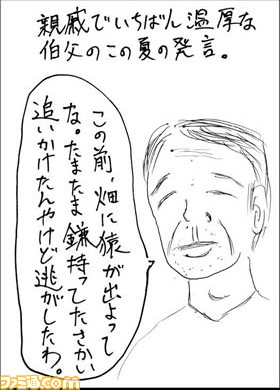 親戚でいちばん温厚な
伯父のこの夏の発言。
この前、畑に猿が出よって
な。たまたま鎌持ってたさかい
追いかけたんやけど逃がしたわ。
ファミ通.com